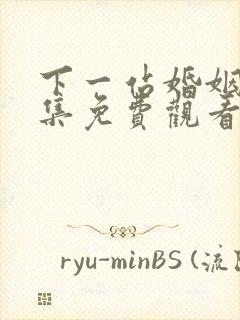 下一佔婚姻
集免費觀看
ryu-minBS (流